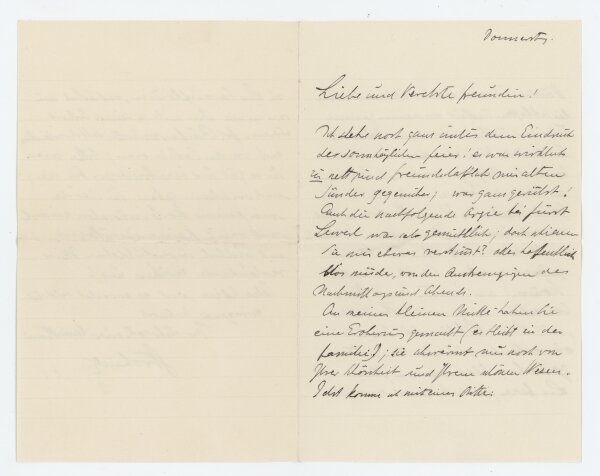 Donnerstg.
Liebe und Verehrte Freundin!
Ich stehe noch ganz unter dem Eindruck
der sonntäglichen Feier! es war wirklich
zu nett und freundschaftlich mir alten
Sünder gegenüber; war ganz gerührt!
Auch die nachfolgende Orgie bei Fürst
war sehr gemüthlich; doch schienen
Sie mir etwas verstimt? oder hoffentlich
blos müde, von den Anstrengungen des
Nachmittags und Abends.
An meiner kleinen Nichte haben Sie
eine Eroberung gemacht (es bleibt in der
Familie!); sie schwärmt nur noch von
Ihrer Schönheit und Ihrem schönen Wesen.
Jetzt komme ich mit einer Bitte: